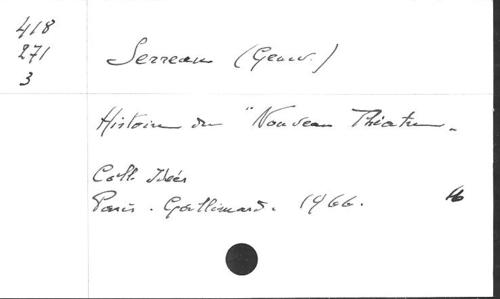 418
271
3
Serreau (Genev.)
Histoire du "Nouveau Théâtre.
Coll. Idées
Paris. Gallimard. 1966.